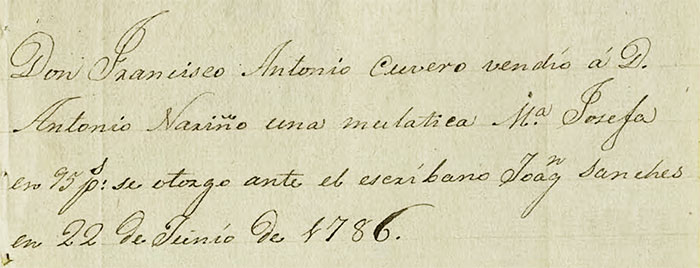 Don Francisco Antonio Cuvero vendió á D.
Antonio Nariño una mulatica M.ª Josefa
en 95 p.s se otorgo ante el escríbano Joaqn Sanches
en 22 de Junío de 1786.